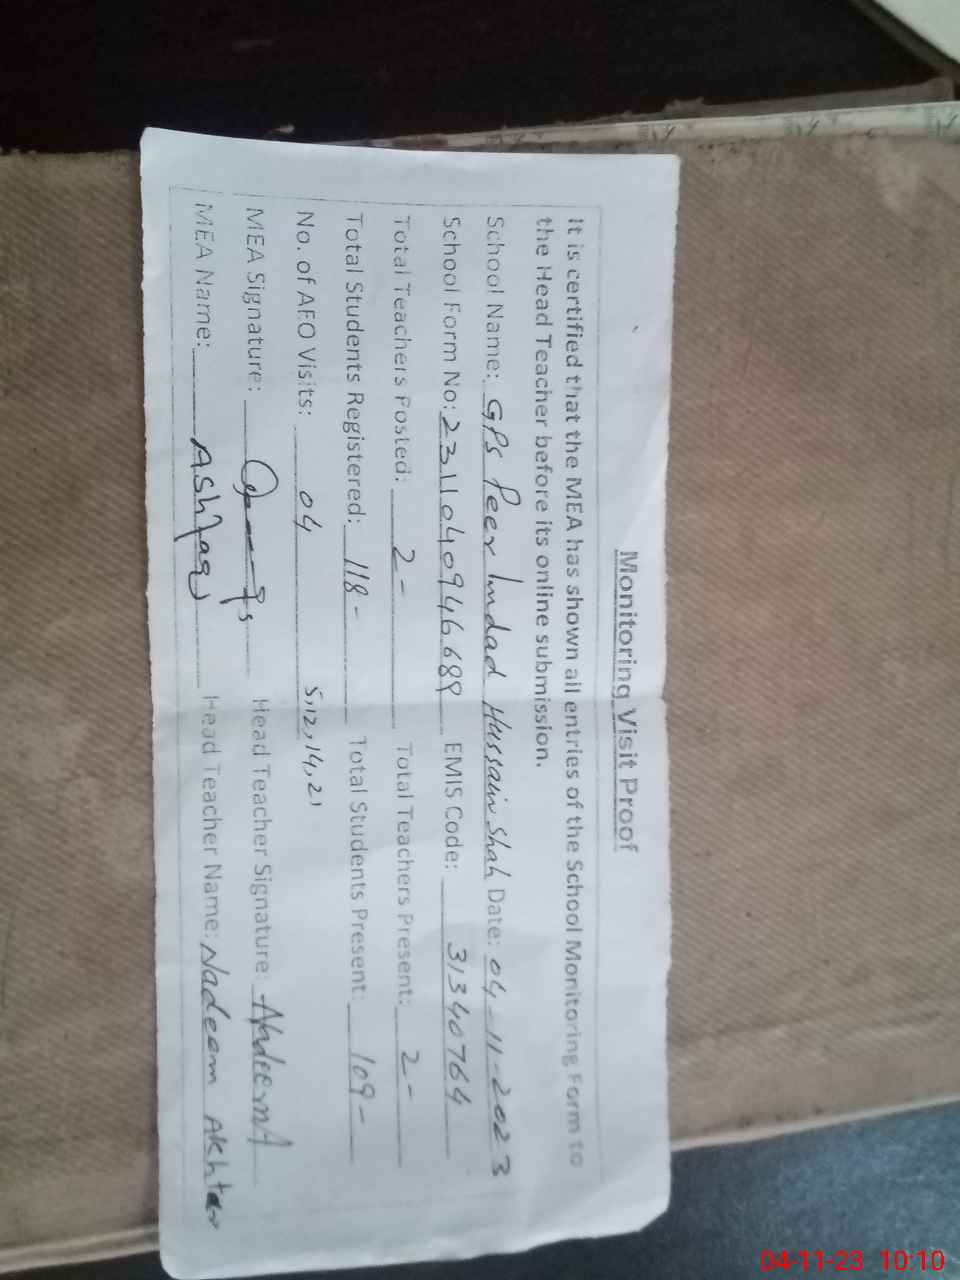 Monitoring Visit Proof
It is certified that the MEA has shown all entries of the School Monitoring Form to
the Head Teacher before its online submission.
School Name: GPS Peer Imdad Hussain Shah Date: 04-11-2023
School Form No: 2311040946689 EMIS Code: 31340764
Total Teachers Posted: 2- Total Teachers Present: 2-
Total Students Registered: 118- Total Students Present: 109-
No. of AEO Visits: 04 5,12,14,21
MEA Signature: Head Teacher Signature: NadeemA
MEA Name: Ashfaq Head Teacher Name: Nadeem Akhtar
04-11-23 10:10